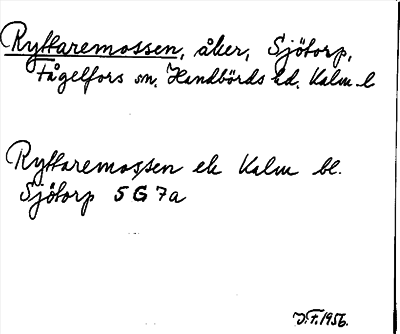 Ryttaremossen, åker, Sjötorp,
Fågelfors sn, Handbörds hd, Kalm. l
Ryttaremossen ek Kalm bl.
Sjötorp 5 G 7a
J.F. 1956.